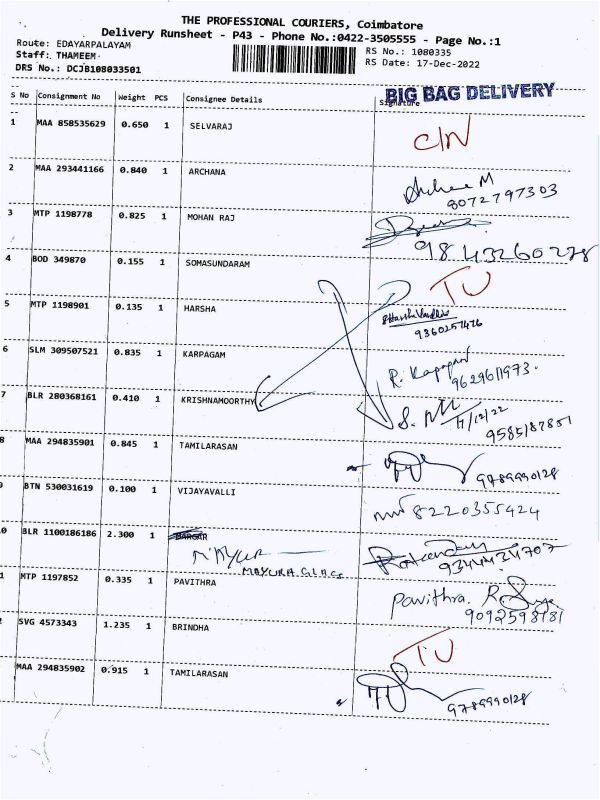 THE PROFESSIONAL COURIERS, Coimbatore
Delivery Runsheet - P43 - Phone No.:0422-3505555 - Page No.:1
Route: EDAYARPALAYAM
RS No.: 1080335
Staff: THAMEEM
RS Date: 17-Dec-2022
DRS No.: DCJB108033501
BIG BAG DELIVERY
S No Consignment No Weight PCS Consignee Details Signature
1 MAA 858535629 0.650 1 SELVARAJ C/N
2 MAA 293441166 0.840 1 ARCHANA Archana M
8072797303
3 MTP 1198778 0.825 1 MOHAN RAJ
9843260278
4 BOD 349870 0.155 1 SOMASUNDARAM TU
5 MTP 1198901 0.135 1 HARSHA
9360257476
6 SLM 309507521 0.835 1 KARPAGAM R. Karpagam
9629611973.
7 BLR 280368161 0.410 1 KRISHNAMOORTHY S. 17/12/22
9585187851
8 MAA 294835901 0.845 1 TAMILARASAN
9789990128
9 BTN 530031619 0.100 1 VIJAYAVALLI 8220355424
0 BLR 1100186186 2.300 1
MAYURA GLASS
9344434707
1 MTP 1197852 0.335 1 PAVITHRA Pavithra. R
9092598181
2 SVG 4573343 1.235 1 BRINDHA TU
MAA 294835902 0.915 1 TAMILARASAN
9789990128